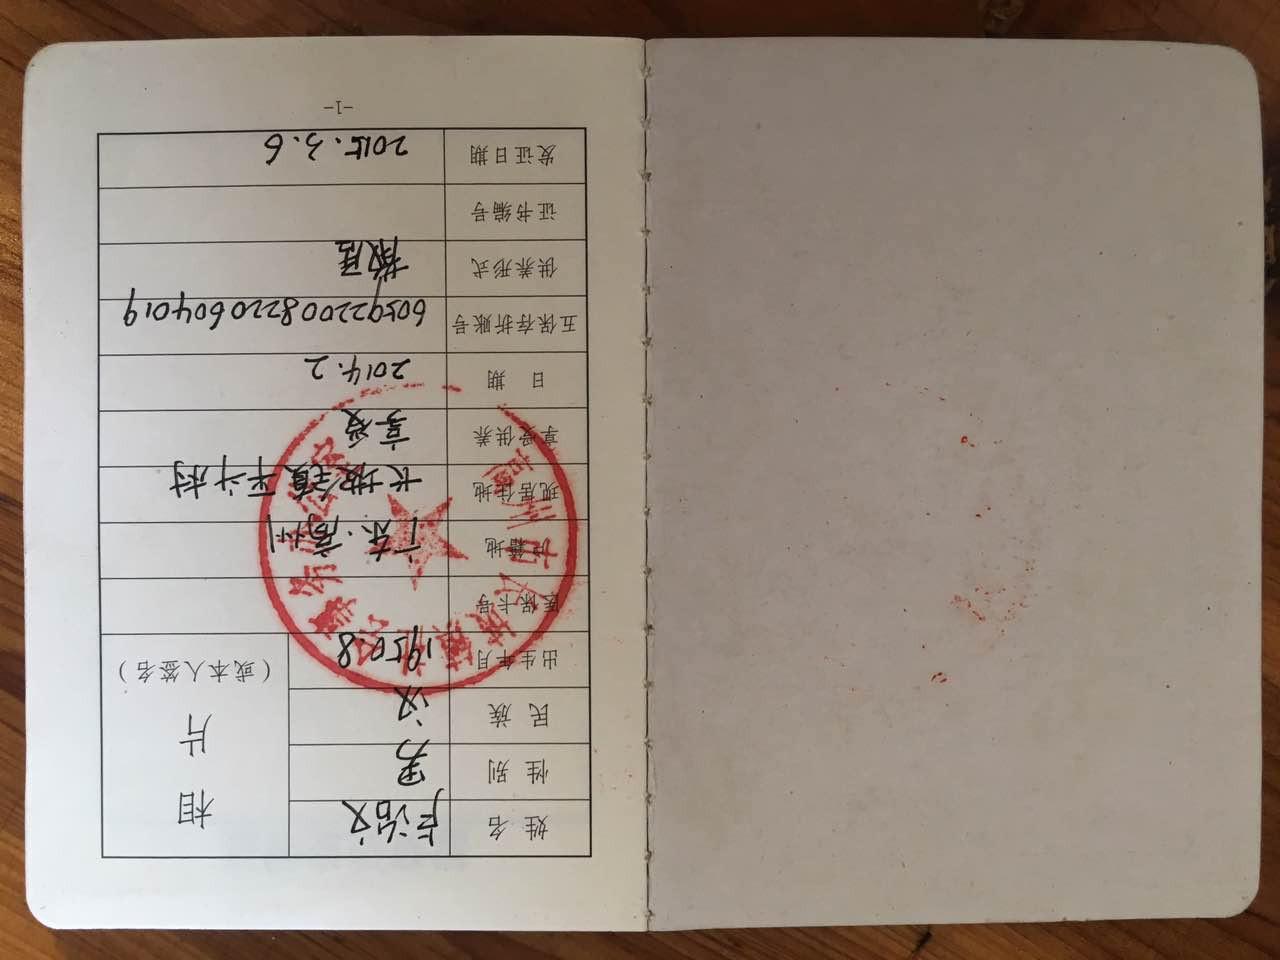 姓 名 卢治文
相
性 别 男
片
民 族 汉
(或本人签名)
出生年月 1950.8
医保卡号
户籍地 广东.高州
现居住地 长坡镇平斗村
享受供养 享受
日 期 2014.2
五保存折账号 605922008220604019
供养形式 散居
证书编号
发证日期 2015.3.6
-1-